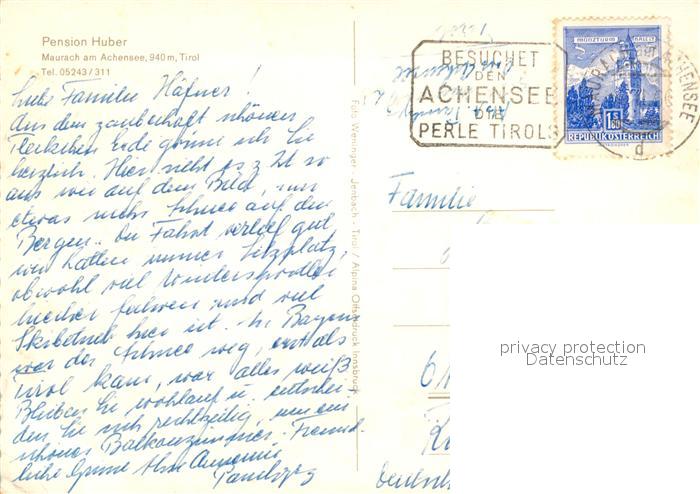 Pension Huber
Maurach am Achensee, 940 m, Tirol
Tel. 05243/311
Liebe Familie Häfner!
Aus dem zauberhaft schönen
Fleckchen Erde grüße ich Sie
herzlich. Hier sieht es z. Zt. so
aus wie auf dem Bild, nur
etwas mehr Schnee auf den
Bergen. Die Fahrt verlief gut
wir hatten immer Sitzplatz,
obwohl viel Wintersportler
fuhren und viel
Skibetrieb hier ist. In Bayern
war der Schnee weg, erst als
Tirol kam, war alles weiß.
Bleiben Sie wohlauf u. entschei-
den Sie sich rechtzeitig, um ein
schönes Balkonzimmer. Freund-
liche Grüße Ihre
Foto Weninger - Jenbach - Tirol / Alpina Offsetdruck Innsbruck
BESUCHET
DEN
ACHENSEE
DIE
PERLE TIROLS
MÜNZTURM HALL I. T.
1.80
REPUBLIK ÖSTERREICH
MAURACH ACHENSEE
d
Familie
6
privacy protection
Datenschutz